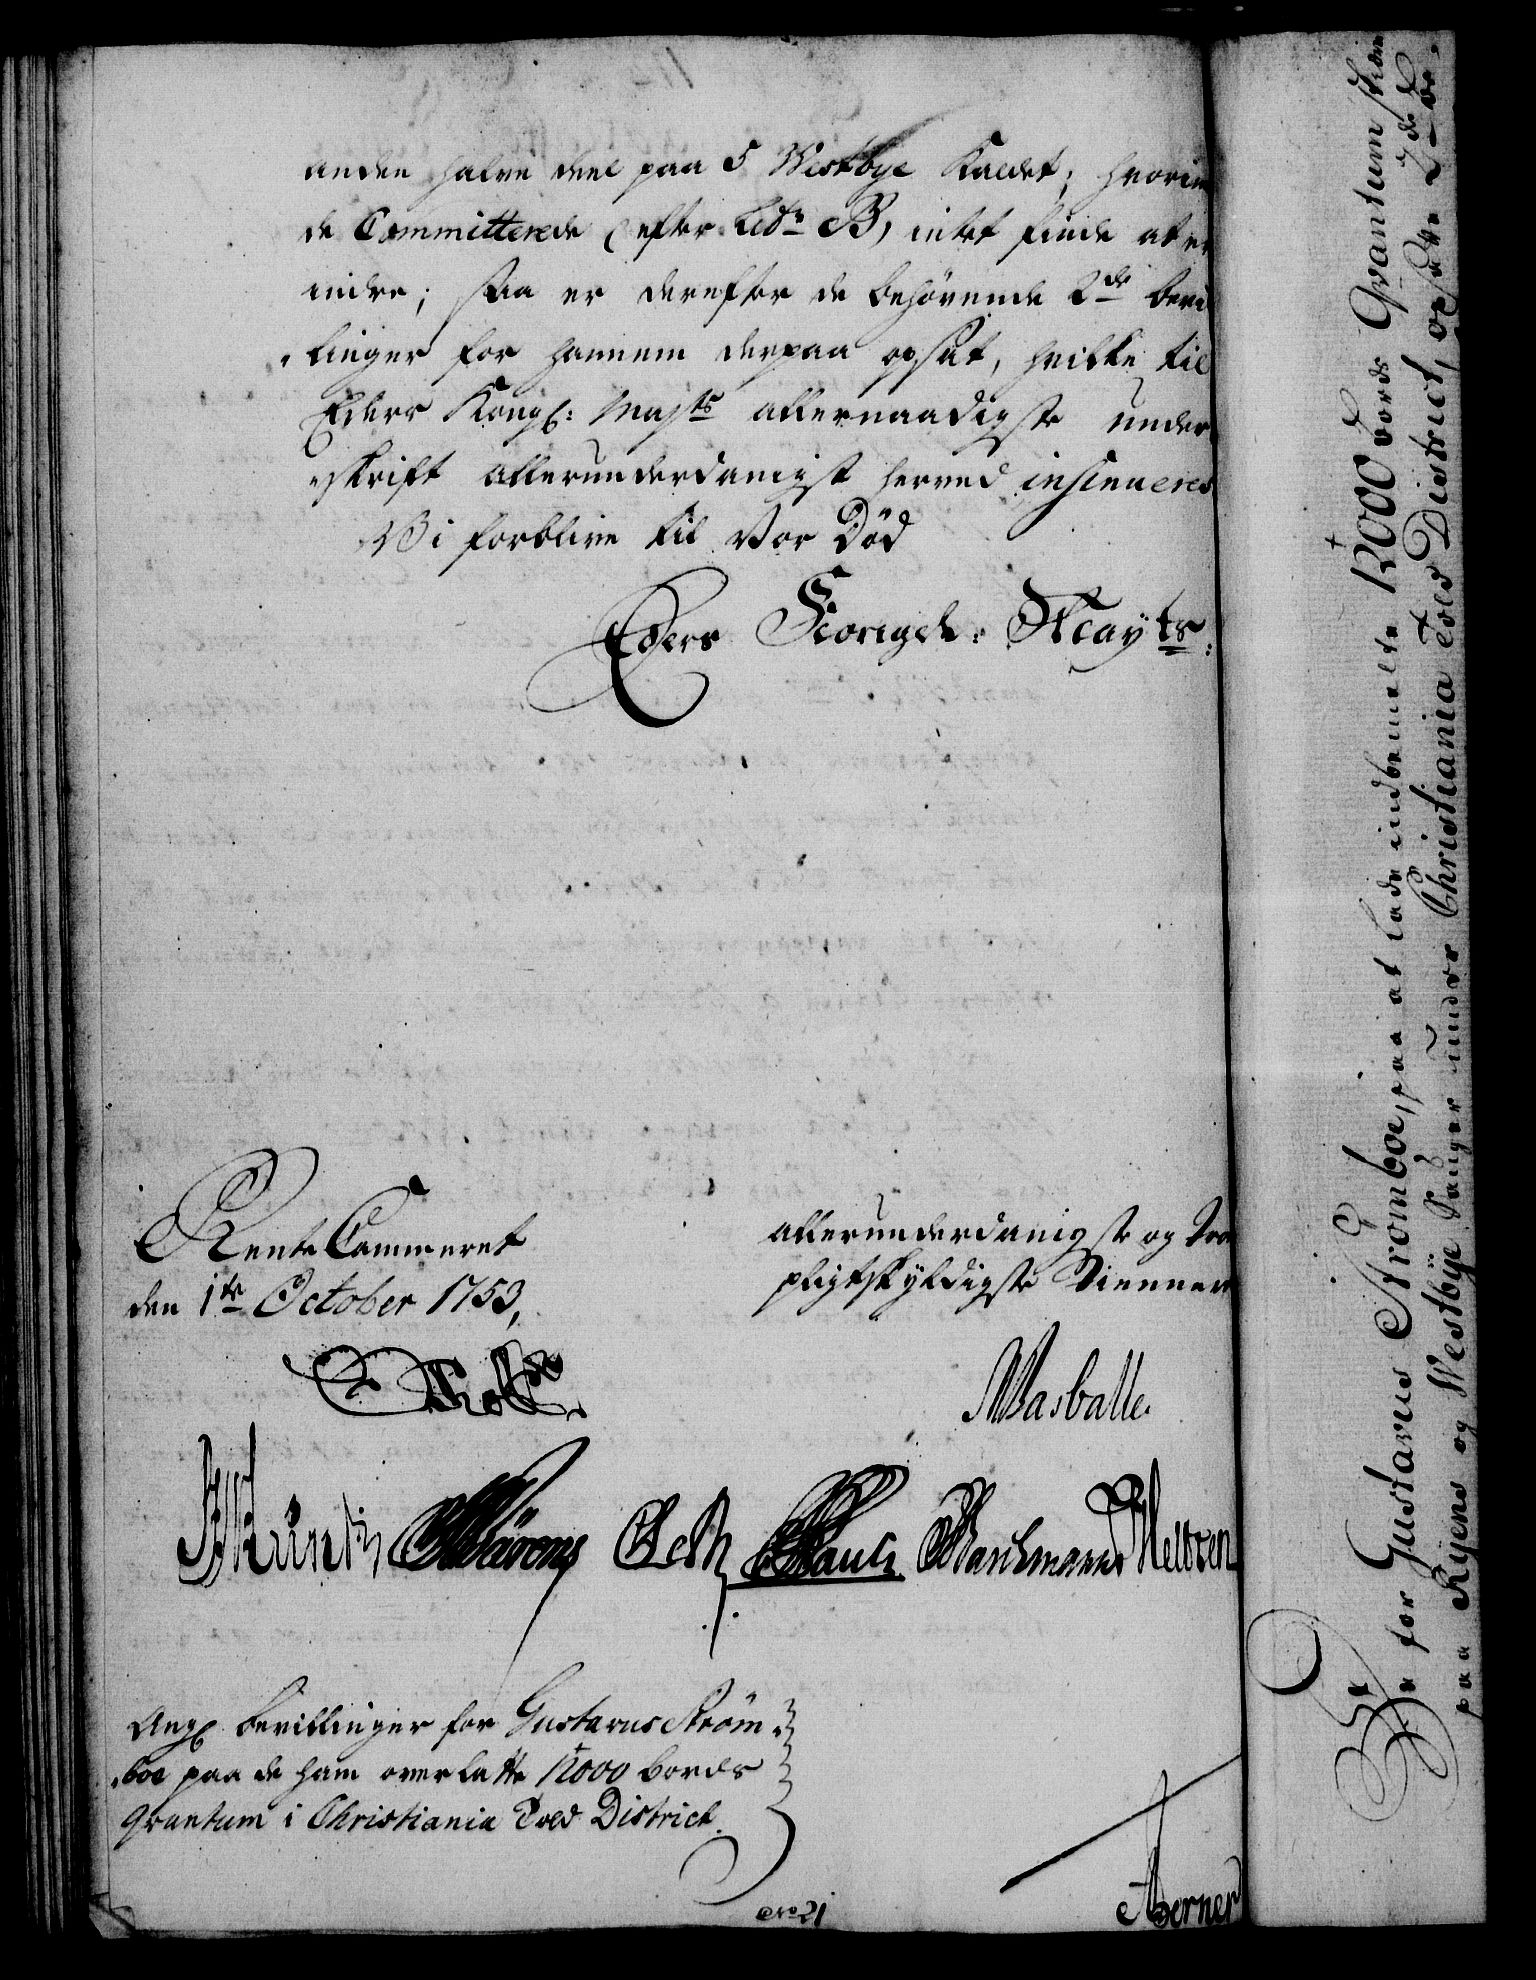 anden halve deel paa 5 Westbye Kaldet; hvorim
de Committerede efter Litr: B, intet finde at er
indre; Saa er derefter de behövende 2de bevil
linger for hannem derpaa opsat, hvilke til
Eders Kongl: Maj.ts allernaadigste under
skrift allerunderdanigst herved insinueres
Vi forblive til Vor Död
Eders Kongel: Mayts:
Rente Cammeret
den 1te October 1753,
allerunderdanigste og tro
pligtskyldigste Tienner
Holst.
Wasballe.
Pauli
Neltzen
Ang: bevillinger for Gustavus Ström-
boe paa de ham overladte 12000 bords
qvantum i Christiania Told District.
No 21
Berner
for Gustavus Stromboe, paa at lade indbemelte 12000 bords Qvantum skiære
paa Ryens og Westbÿe Sauger under Christiania Told District, opsadte 2de